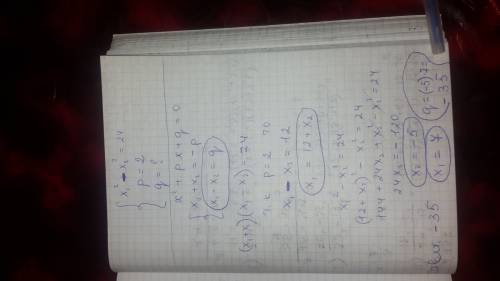 x₁² - x₂² = 24
p = 2
q = ?
x² + px + q = 0
x₁ + x₂ = -p
x₁ · x₂ = q
(x₁+x₂)(x₁-x₂) = 24
т.к. p=2 то
x₁ - x₂ = 12
x₁ = 12 + x₂
x₁² - x₂² = 24
(12 + x₂)² - x₂² = 24
144 + 24x₂ + x₂² - x₂² = 24
24x₂ = -120
x₂ = -5 q = (-5)·7=
x₁ = 7 -35
-35